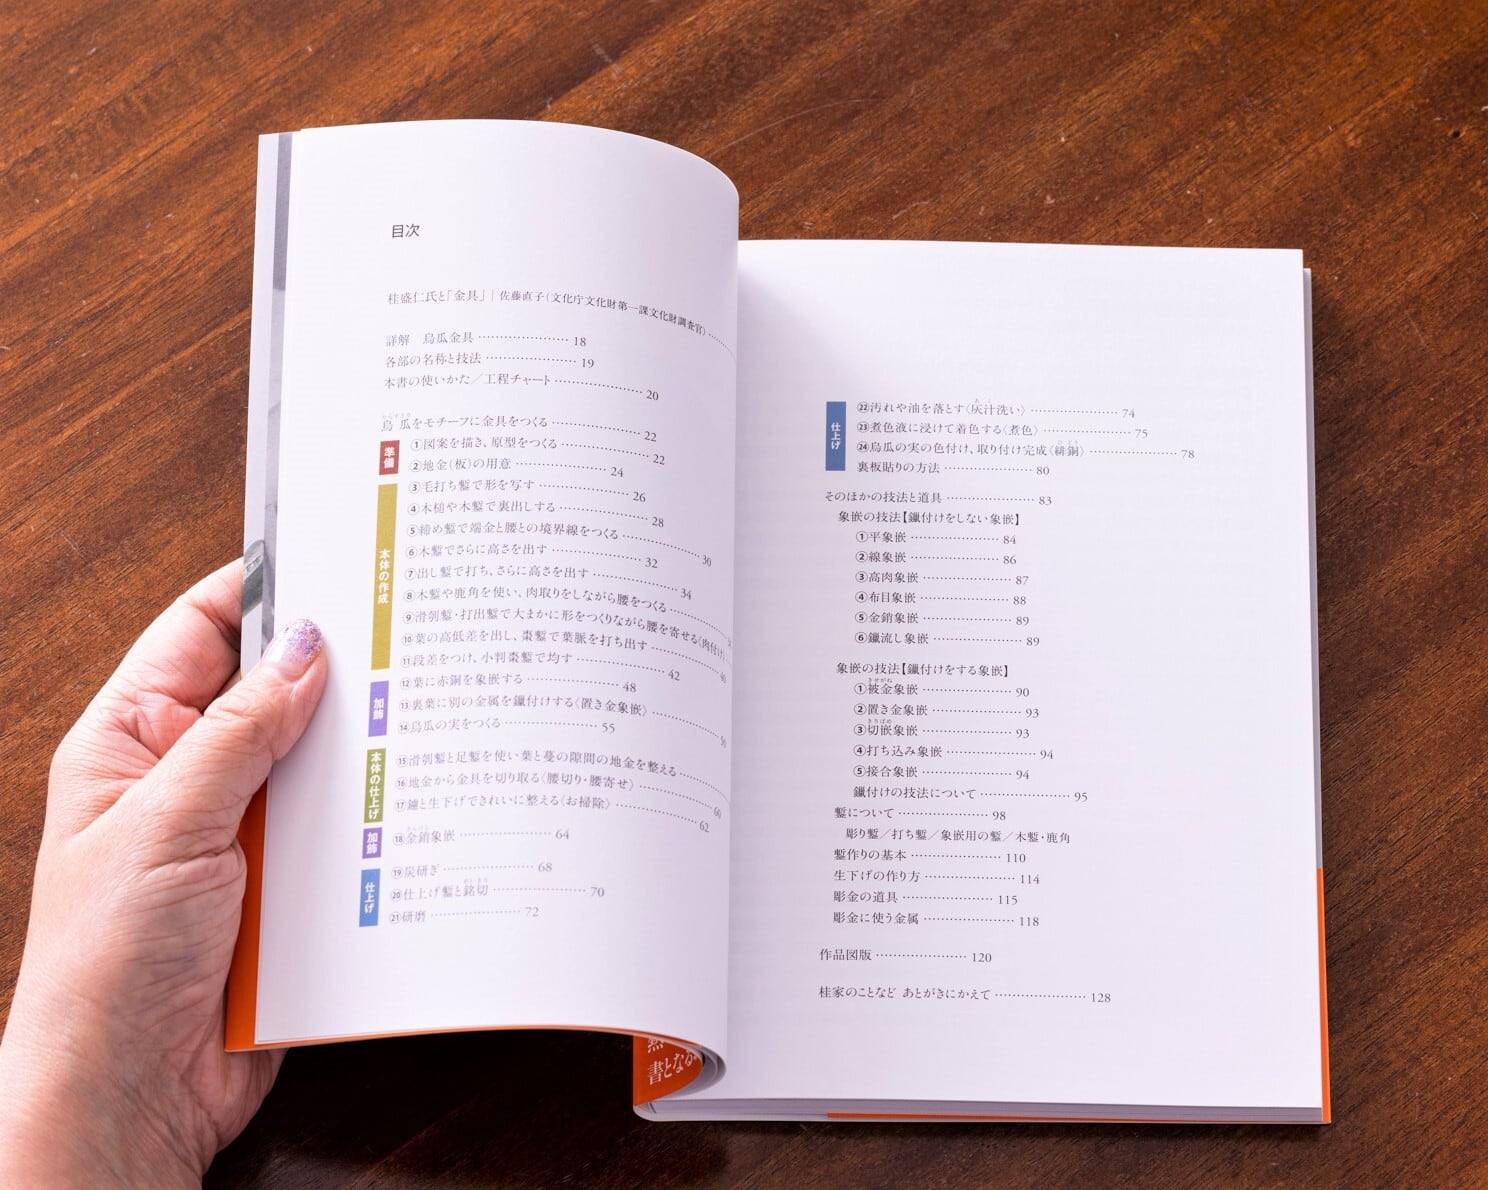 目次
桂盛仁氏と「金具」｜佐藤直子（文化庁文化財第一課文化財調査官）
詳解　烏瓜金具 18
各部の名称と技法 19
本書の使いかた／工程チャート 20
烏瓜をモチーフに金具をつくる 22
準備
①図案を描き、原型をつくる 22
②地金（板）の用意 24
本体の作成
③毛打ち鏨で形を写す 26
④木槌や木鏨で裏出しする 28
⑤締め鏨で端金と腰との境界線をつくる 30
⑥木鏨でさらに高さを出す 32
⑦出し鏨で打ち、さらに高さを出す 34
⑧木鏨や鹿角を使い、肉取りをしながら腰をつくる
⑨滑刳鏨・打出鏨で大まかに形をつくりながら腰を寄せる〈肉付け〉
⑩葉の高低差を出し、棗鏨で葉脈を打ち出す 40
⑪段差をつけ、小判棗鏨で均す 42
加飾
⑫葉に赤銅を象嵌する 48
⑬裏葉に別の金属を鑞付けする〈置き金象嵌〉
⑭烏瓜の実をつくる 55
本体の仕上げ
⑮滑刳鏨と足鏨を使い葉と蔓の隙間の地金を整える
⑯地金から金具を切り取る〈腰切り・腰寄せ〉 60
⑰鑢と生下げできれいに整える〈お掃除〉 62
加飾
⑱金銷象嵌 64
仕上げ
⑲炭研ぎ 68
⑳仕上げ鏨と銘切 70
㉑研磨 72
仕上げ
㉒汚れや油を落とす〈灰汁洗い〉 74
㉓煮色液に浸けて着色する〈煮色〉 75
㉔烏瓜の実の色付け、取り付け完成〈緋銅〉 78
裏板貼りの方法 80
そのほかの技法と道具 83
象嵌の技法【鑞付けをしない象嵌】
①平象嵌 84
②線象嵌 86
③高肉象嵌 87
④布目象嵌 88
⑤金銷象嵌 89
⑥鑞流し象嵌 89
象嵌の技法【鑞付けをする象嵌】
①被金象嵌 90
②置き金象嵌 93
③切嵌象嵌 93
④打ち込み象嵌 94
⑤接合象嵌 94
鑞付けの技法について 95
鏨について 98
彫り鏨／打ち鏨／象嵌用の鏨／木鏨・鹿角
鏨作りの基本 110
生下げの作り方 114
彫金の道具 115
彫金に使う金属 118
作品図版 120
桂家のことなど あとがきにかえて 128
書となる